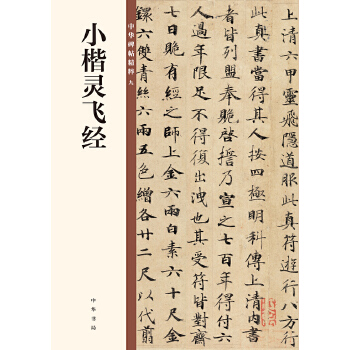 小楷灵飞经
中华碑帖精粹
中华书局
上清六甲靈飛隱道服此真符遊行八方行
此真書當得其人按四極明科傳上清內書
者皆列盟奉賧啓誓乃宣之七百年得付六
人過年限足不得復出泄也其受符皆對齋
七日賧有經之師上金六兩白素六十尺金
鐶六雙青絲六兩五色繒各廿二尺以代翦